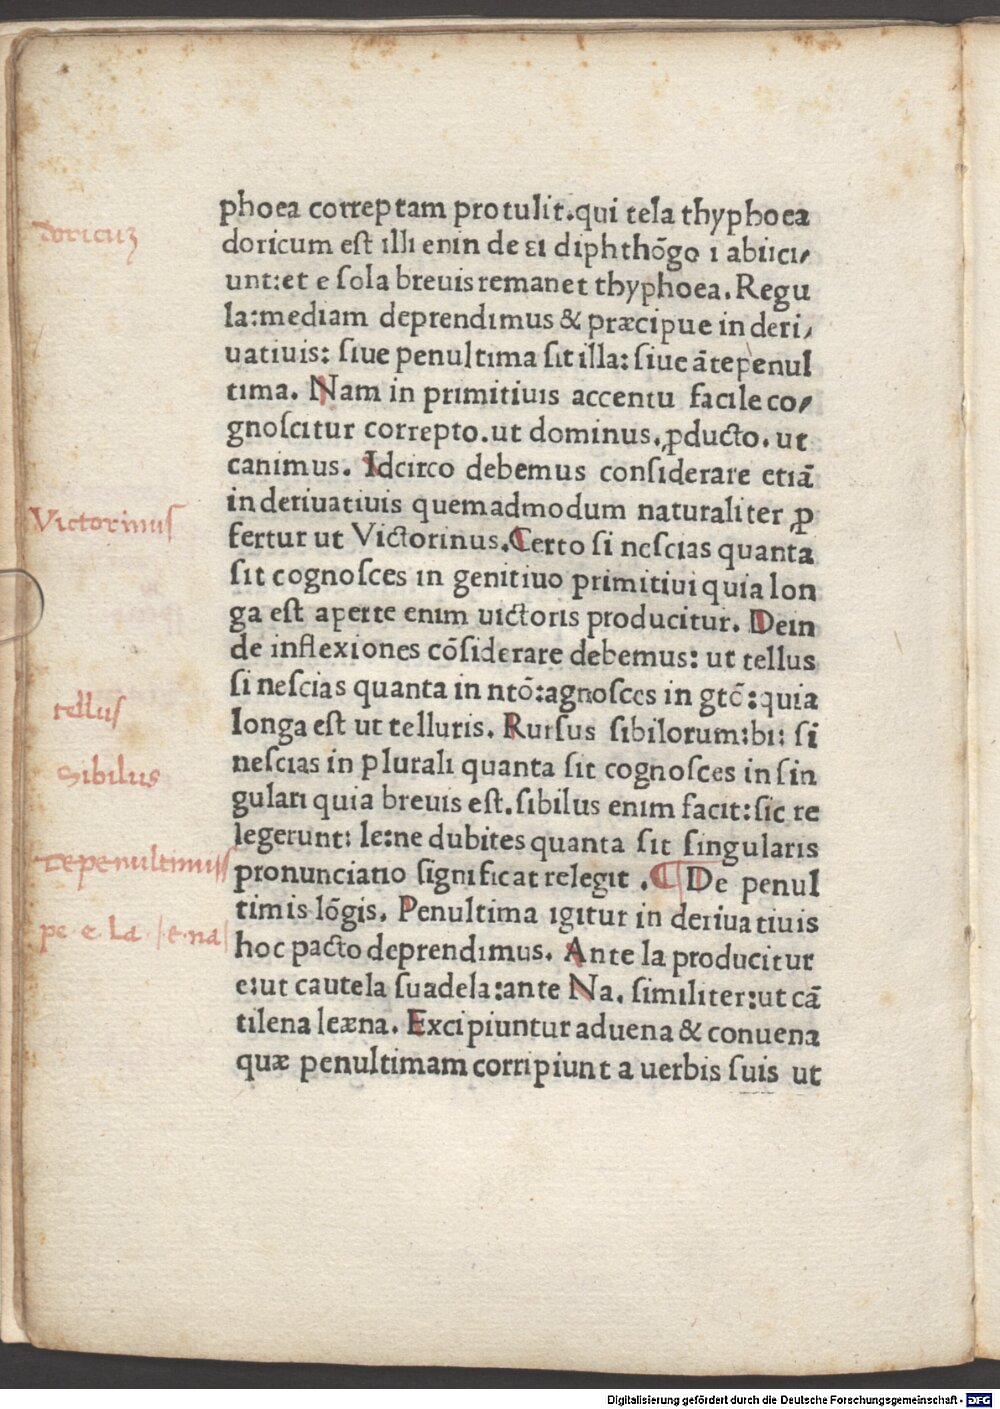 phoea correptam protulit.qui tela thyphoea
doricum est illi enin de ει diphthōgo ι abiici,
unt:et e sola breuis remanet thyphoea. Regu
la:mediam deprendimus & præcipue in deri,
uatiuis: siue penultima sit illa: siue ātepenul
tima. Nam in primitiuis accentu facile co,
gnoscitur correpto.ut dominus.ꝓducto. ut
canimus. Idcirco debemus considerare etiā
in deriuatiuis quemadmodum naturaliter ꝓ
fertur ut Victorinus. Certo si nescias quanta
sit cognosces in genitiuo primitiui quia lon
ga est aperte enim uictoris producitur. Dein
de inflexiones cōsiderare debemus: ut tellus
si nescias quanta in ntō:agnosces in gtō:quia
longa est ut telluris. Rursus sibilorum:bi: si
nescias in plurali quanta sit cognosces in sin
gulari quia breuis est.sibilus enim facit:sic re
legerunt: le:ne dubites quanta sit singularis
pronunciatio significat relegit . ¶ De penul
timis lōgis. Penultima igitur in deriuatiuis
hoc pacto deprendimus. Ante la producitur
e:ut cautela suadela:ante Na. similiter:ut cā
tilena leæna. Excipiuntur aduena & conuena
quæ penultimam corripiunt a uerbis suis ut
doricuꝫ
Victorinus
tellus
Sibilus
De penultimis
pe e. La . e. na
Digitalisierung gefördert durch die Deutsche Forschungsgemeinschaft - DFG